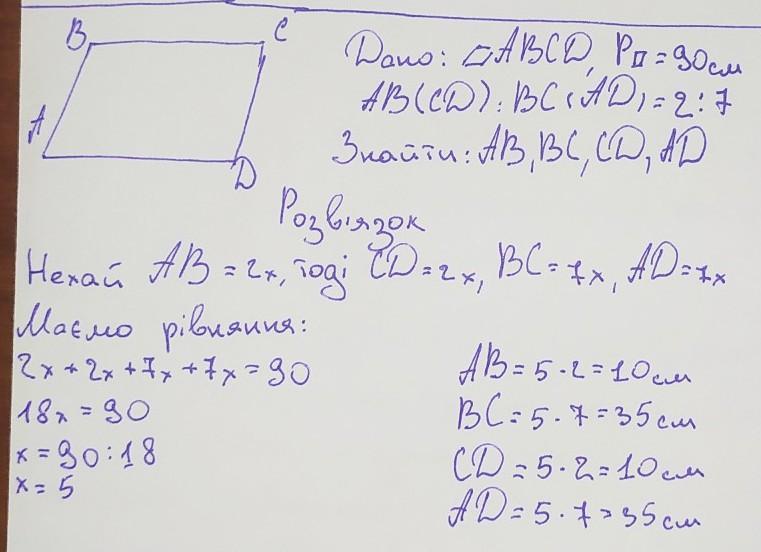 B C
A D
Дано: ▱ABCD, P▱=90см
AB(CD):BC(AD)=2:7
Знайти: AB, BC, CD, AD
Розв'язок
Нехай AB=2x, тоді CD=2x, BC=7x, AD=7x
Маємо рівняння:
2x+2x+7x+7x=90
18x=90
x=90:18
x=5
AB=5·2=10см
BC=5·7=35см
CD=5·2=10см
AD=5·7=35см